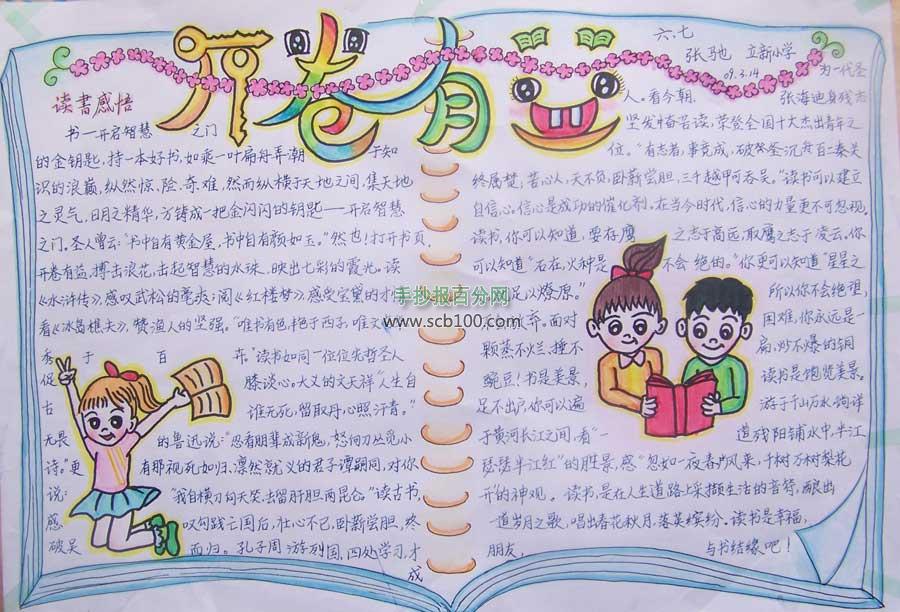 开卷有益
六.七
张驰 立新小学
09.3.14
读書感悟
书—开启智慧之门
的金钥匙,持一本好书,如乘一叶扁舟弄潮于知
识的浪巅,纵然惊、险、奇、难,然而纵横于天地之间,集天地
之灵气,日月之精华,方铸成一把金闪闪的钥匙——开启智慧
之门。圣人曾云:“书中自有黄金屋,书中自有颜如玉。”然也!打开书页,
开卷有益,搏击浪花,击起智慧的水珠,映出七彩的霞光。读
《水浒传》,感叹武松的豪爽;阅《红楼梦》,感受宝黛的才
看《冰岛渔夫》,赞渔人的坚强。“唯书有色,艳于西子,唯文
秀于百卉。”读书如同一位位先哲圣人
促膝谈心。大义的文天祥“人生自
古谁无死,留取丹心照汗青。”
无畏的鲁迅说:“忍看朋辈成新鬼,怒向刀丛觅小
诗。”更有那视死如归,凛然就义的君子谭嗣同,对你
说:“我自横刀向天笑,去留肝胆两昆仑。”读古书,
感叹勾践亡国后,壮心不已,卧薪尝胆,终
破吴而归。孔子周游列国,四处学习,才
成
为一代圣
人。看今朝,张海迪身残志
坚发愤苦读,荣登全国十大杰出青年之
位。“有志者,事竟成,破釜沉舟百二秦关
终属楚,苦心人,天不负,卧薪尝胆,三千越甲可吞吴。”读书可以建立
自信心。信心是成功的催化剂。在当今时代,信心的力量更不可忽视。
读书,你可以知道,要存鹰之志于高远,取鹰之志于凌云。你
可以知道“石在,火种是不会绝的。”你更可以知道“星星之
足以燎原。”所以你不会绝望,
弃。面对困难,你永远是一
颗蒸不烂、捶不扁、炒不爆的铜
豌豆!书是美景,读书是饱览美景。
足不出户,你可以遍游于千山万水,徜徉
于黄河长江之间,看“一道残阳铺水中,半江
瑟瑟半江红”的胜景,感“忽如一夜春风来,千树万树梨花
开”的神观。读书,是在人生道路上采撷生活的音符,酿出
一道岁月之歌,唱出春花秋月,落英缤纷。读书是幸福,
朋友,与书结缘吧!
手抄报百分网
www.scb100.com